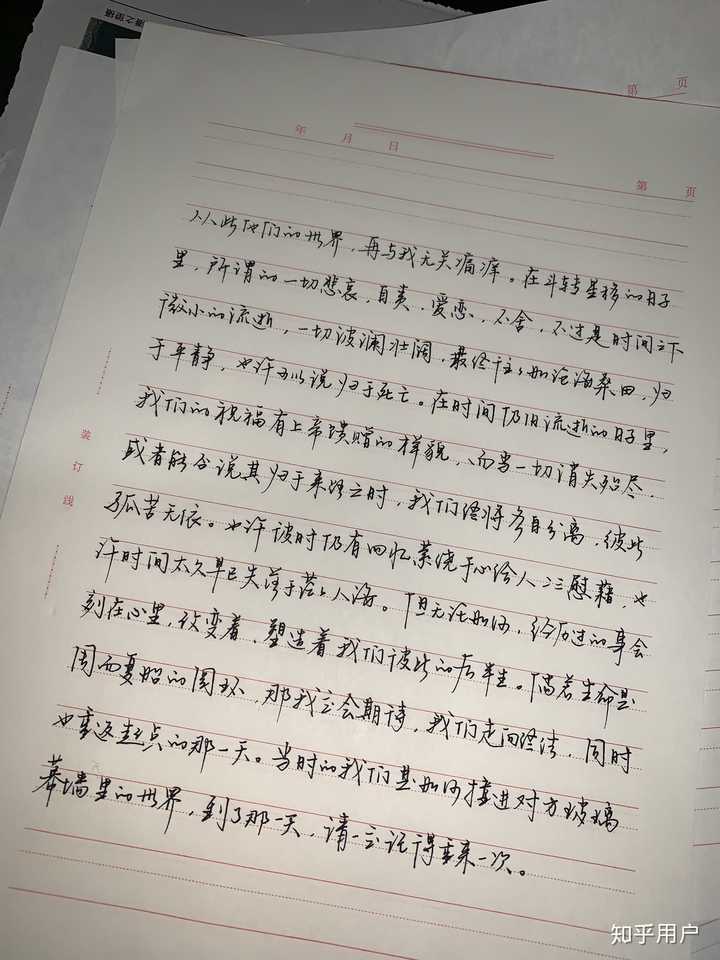 第 页
年 月 日
第 页
从此他们的世界,再与我无关痛痒。在斗转星移的日子
里,所谓的一切悲哀,自责,爱恋,不舍,不过是时间之下
微小的流逝,一切波澜壮阔,最终往往如沧海桑田,归
于平静,也许可以说归于死亡。在时间仍旧流逝的日子里,
我们的祝福有上帝馈赠的样貌,而当一切消失殆尽,
或者能否说其归于来路之时,我们终将各自分离,彼此
孤苦无依。也许彼时仍有回忆萦绕于心给人一二慰藉,也
许时间太久早已失落于茫茫人海。但无论如何,经历过的事会
刻在心里,改变着,塑造着我们彼此的后半生。倘若生命是
周而复始的圆环,那我会期待,我们走向终结,同时
也重返起点的那一天。当时的我们是如何撞进对方玻璃
幕墙里的世界,到了那一天,请一定记得重来一次。
装
订
线
知乎用户